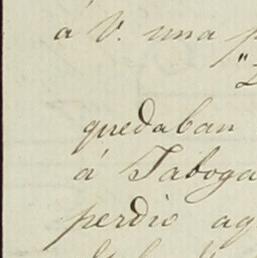 á V. una
quedaban
á Taboga
perdio